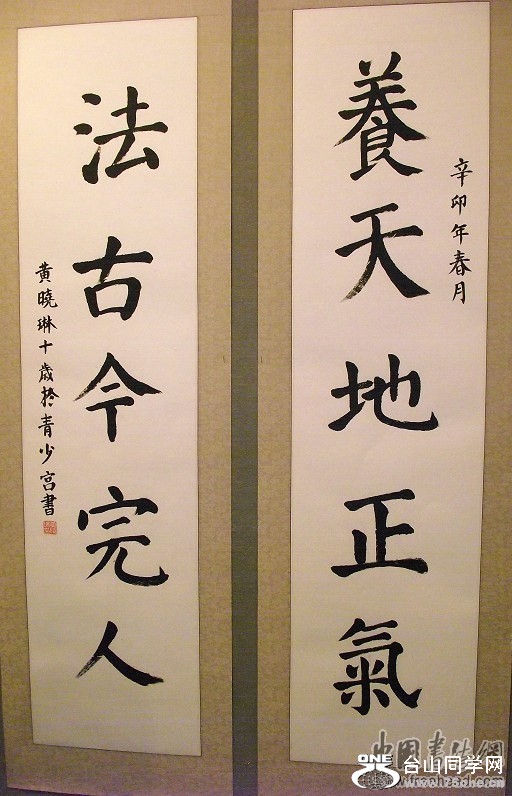 辛卯年春月
養天地正氣
法古今完人
黃曉琳十歲於青少宮書
中国书法网
ONE
台山同学网
www.25one.cn